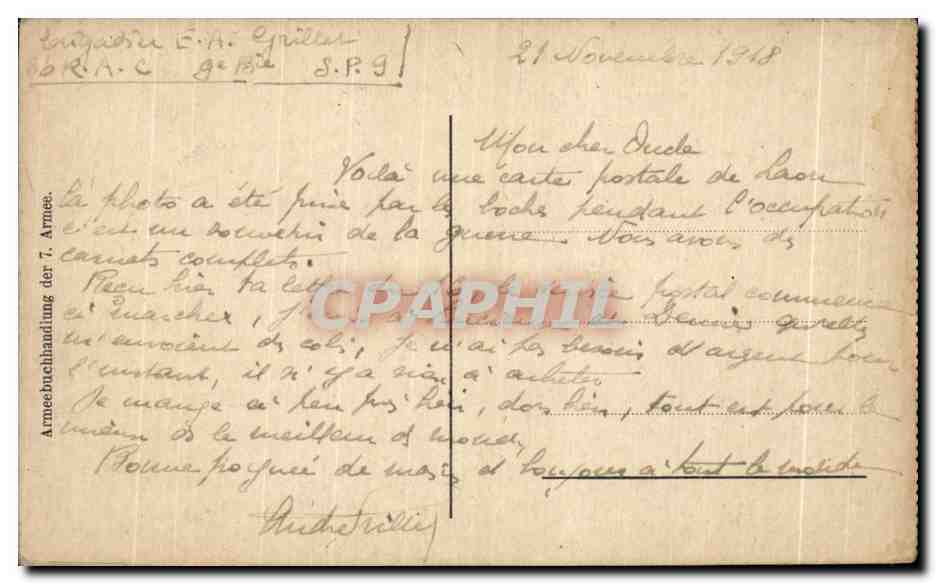 Brigadier E. A. Grillet
R. A. C 9e Bie S. P. 9
21 Novembre 1918
Mon cher Oncle
Voilà une carte postale de Laon
la photo a été prise par les boches pendant l'occupation
c'est un souvenir de la guerre. Nous avons des
carnets complets.
Reçu hier ta lettre du le service postal commence
à marcher,
m'envoient des colis, je n'ai pas besoin d'argent pour
l'instant, il n'y a rien à acheter
Je mange à peu près bien, dors bien, tout est pour le
mieux ds le meilleur d mondes
Bonne poignée de main et bonjour à tout le monde
André
Armeebuchhandlung der 7. Armee.
CPAPHIL